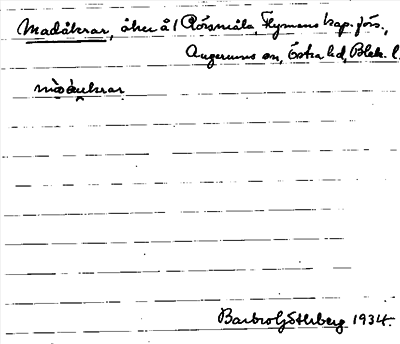 Madåkrar, åker å 1 Rörsmåla, Flymens kap. förs.,
Augerums sn, Östra hd, Blek. l.
màdàkrar
Barbro Göthberg 1934.